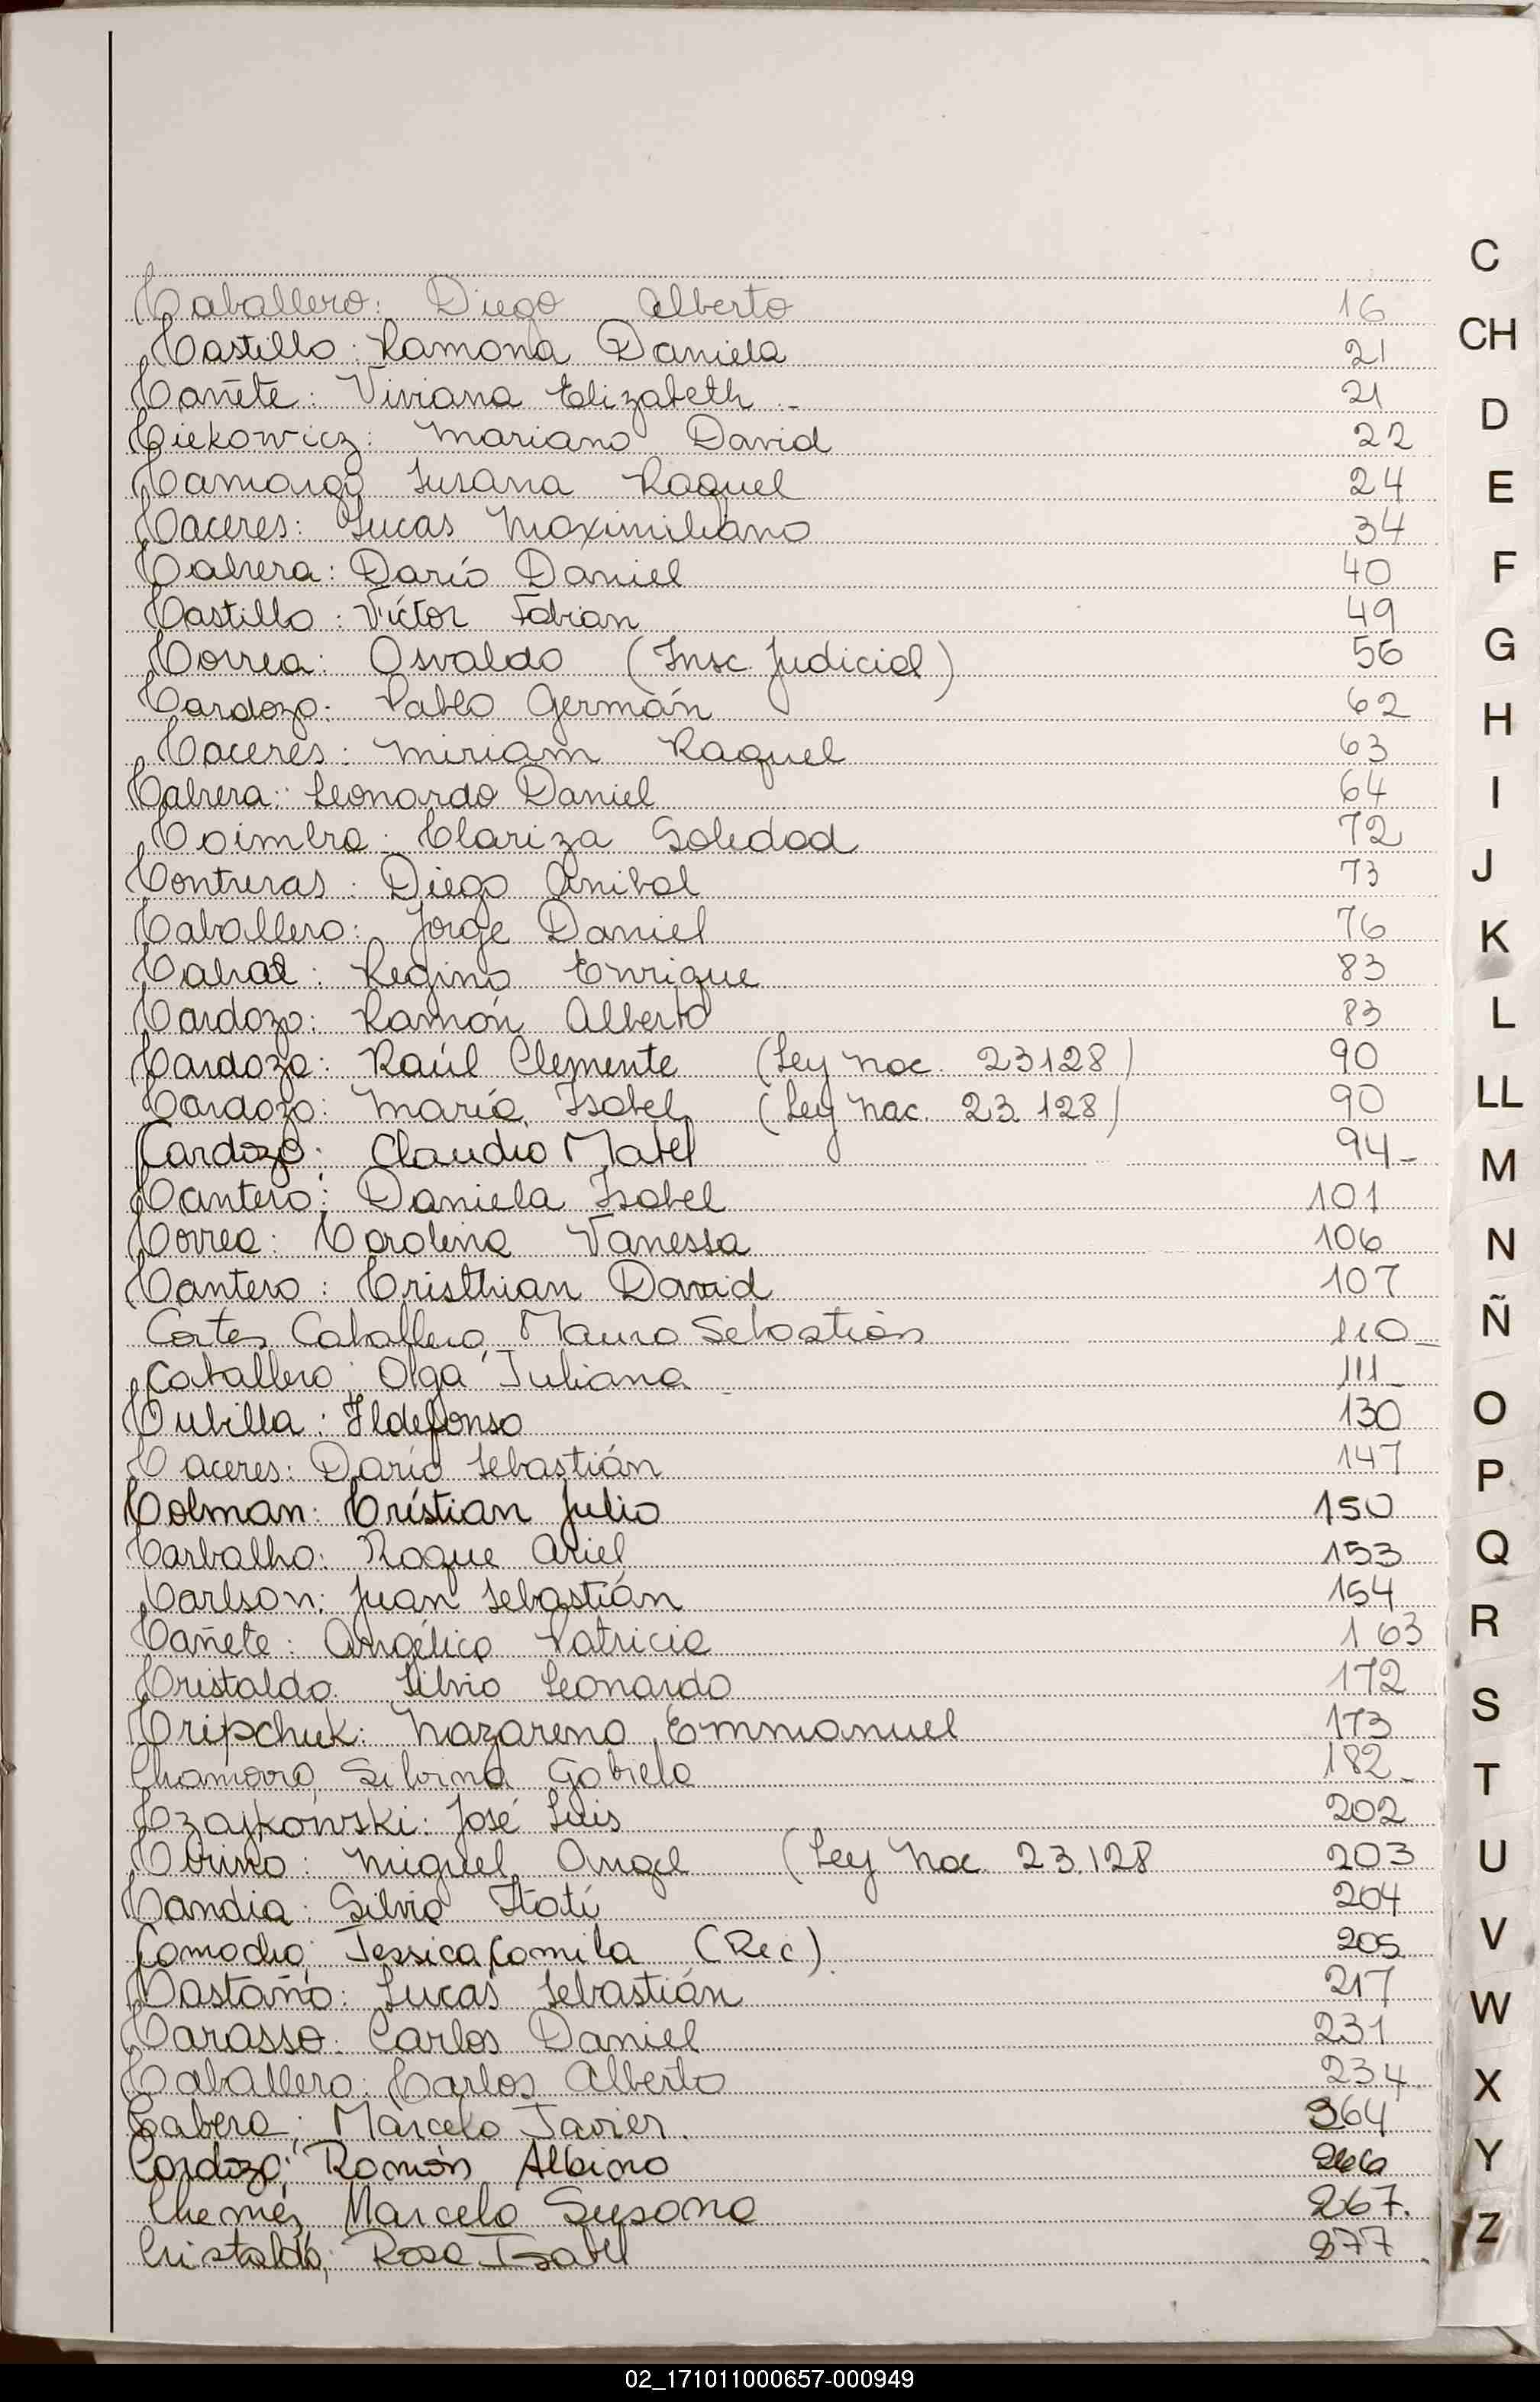 C
Caballero: Diego Alberto 16
CH
Castillo: Ramona Daniela 21
Cañete: Viviana Elizabeth.- 21
D
Ciekowicz: Mariano David 22
Camargo Susana Raquel 24
E
Caceres: Lucas Maximiliano 34
Cabrera: Darío Daniel 40
F
Castillo: Víctor Fabian 49
Correa: Osvaldo (Insc. Judicial) 56
G
Cardozo: Pablo Germán 62
H
Caceres: Miriam Raquel 63
Cabrera: Leonardo Daniel 64
I
Coimbra: Clariza Soledad 72
Contreras: Diego Anibal 73
J
Caballero: Jorge Daniel 76
K
Cabral: Regino Enrique 83
Cardozo: Ramón Alberto 83
L
Cardozo: Raúl Clemente (Ley Nac. 23128) 90
Cardozo: María Isabel (Ley Nac. 23.128) 90
LL
Cardozo: Claudio Matel 94-
M
Cantero: Daniela Isabel 101
Correa: Carolina Vanessa 106
N
Cantero: Cristhian David 107
Cortes Caballero, Mauro Sebastián 110-
Ñ
Caballero; Olga Juliana 111-
Cubilla: Ildefonso 130
O
Caceres: Darío Sebastián 147
P
Colman: Crístian Julio 150
Carbalho: Roque Ariel 153
Q
Carlson: Juan Sebastián 154
Cañete: Angélica Patricia 163
R
Cristaldo Silvio Leonardo 172
S
Cripchuk: Nazareno Emmanuel 173
Chamorro, Silvina Gabriela 182-
T
Czajkowski: José Luis 202
Miguel Angel (Ley Nac 23.128 203
U
Candia: Silvia Itatí 204
Jessica Camila (Rec) 205
V
Castaño: Lucas Sebastián 217
W
Carasso: Carlos Daniel 231
Caballero: Carlos Alberto 234
X
Marcelo Javier. 364
Cardozo; Ramón Albino 266
Y
Marcela Susana 267.
Cristaldo; Rosa Isabel 277
Z
02_171011000657-000949